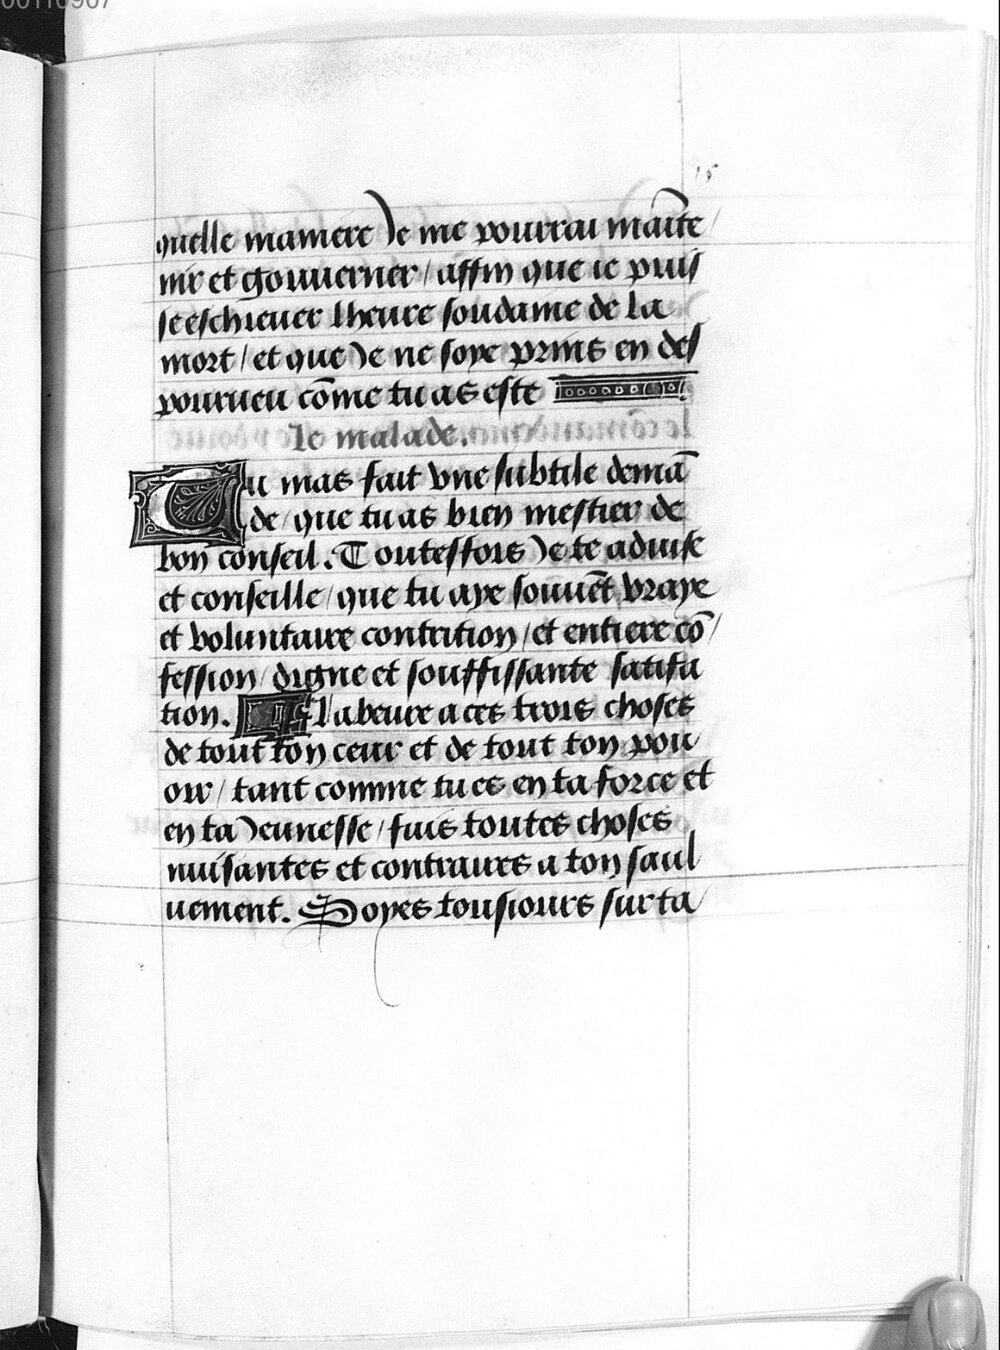 00110907
15
quelle maniere Je me pourrai maīte
nir et gouuerner / affin que ie puis
se eschieuer lheure soudaine de la
mort / et que Je ne soye prins en des
pourueu cōme tu as este
le malade.
Tu mas fait vne subtile demā
de / que tu as bien mestier de
bon conseil. Toutesfois Je te aduise
et conseille / que tu aye souuēt vraye
et voluntaire contrition / et entiere cō /
fession / digne et souffissante satisfa
tion. Labeure a ces trois choses
de tout ton ceur et de tout ton pou
oir / tant comme tu es en ta force et
en ta Jeunesse / fuis toutes choses
nuisantes et contraires a ton saul
uement. Soyes tousiours sur ta